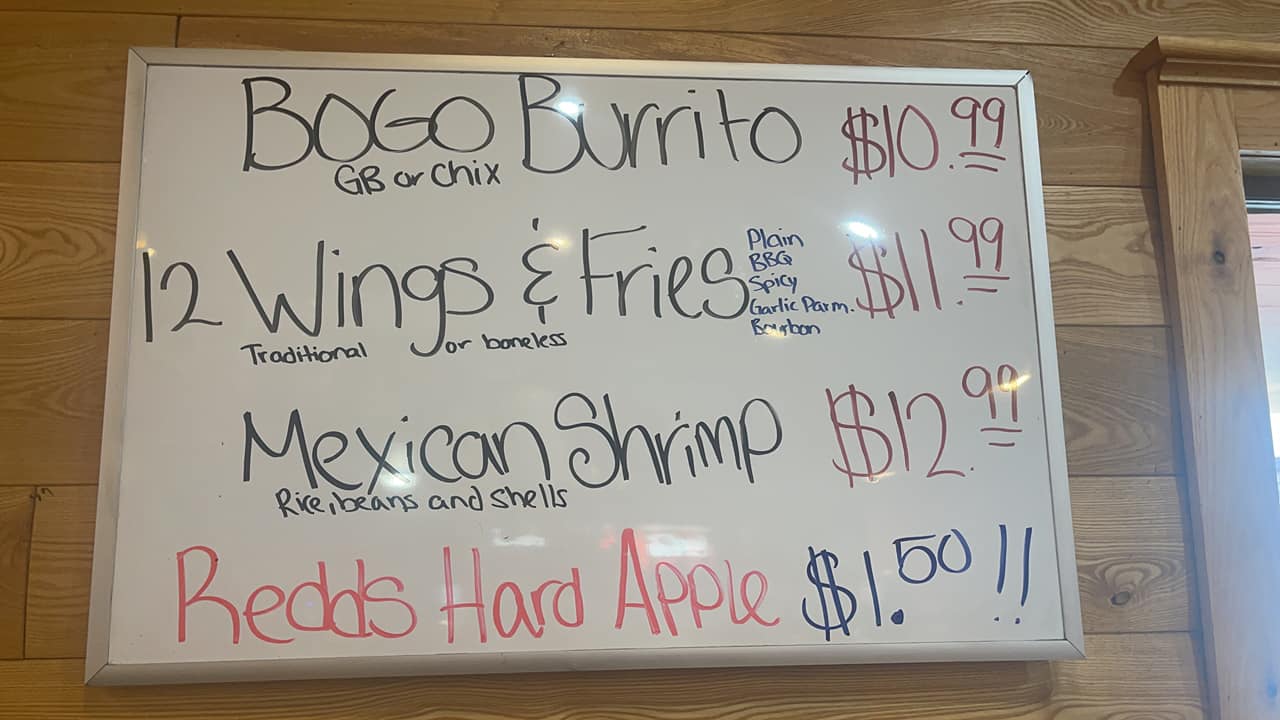 BOGO Burrito $10.99
GB or Chix
12 Wings & Fries $11.99
Plain
BBQ
Spicy
Garlic Parm.
Bourbon
Traditional or boneless
Mexican Shrimp $12.99
Rice, beans and shells
Redds Hard Apple $1.50!!